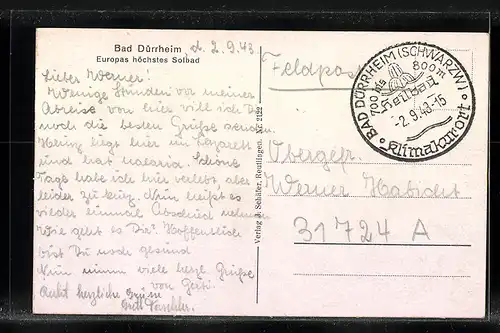 Bad Dürrheim, d. 2.9.43
Europas höchstes Solbad
Lieber Werner!
Wenige Stunden vor meiner
Abreise von hier will ich Dir
noch die besten Grüße senden.
Heinz liegt hier im Lazarett
und hat Malaria. Schöne
Tage habe ich hier verlebt, aber
leider zu kurz. Nun heißt es
wieder einmal Abschied nehmen.
Wie geht es Dir? Hoffentlich
bist Du noch gesund
Nun nimm viele herzl. Grüße
von Gerti.
Recht herzliche Grüße
Verlag J. Schäfer, Reutlingen. Nr. 2122
Feldpost
BAD DÜRRHEIM (SCHWARZW)
700 bis 800m
Heilbad
-2.9.43-15
Klimakurort
Obergefr.
Werner Habicht
31724 A